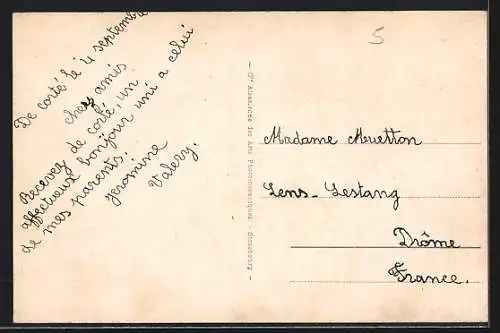 De corté le 4 septembre
chers amis
Recevez de corté, un
affectueux bonjour uni a celui
de mes parents.
Jeromine
Valery.
5
Cie Alsacienne des Arts Photomécaniques - Strasbourg
Madame Mouetton
Lens-Lestang
Drôme
France.